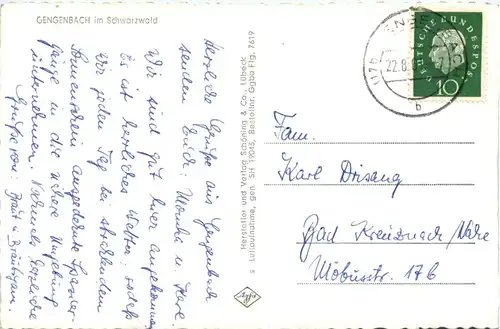 GENGENBACH im Schwarzwald
Herzliche Grüße aus Gengenbach
senden Euch: Monika u. Horst
Wir sind gut hier angekommen
Es ist herrliches Wetter; sodaß
wir jeden Tag bei strahlendem
Sonnenschein ausgedehnte Spazier-
gänge in die nähere Umgebung
unternehmen. Nochmals herzliche
Grüße von: Braut u. Bräutigam.
Hersteller und Verlag Schöning & Co., Lübeck
Luftaufnahme, gen. SH 19043, Bestellnr. Gabo Hg. 7619
22.8.
DEUTSCHE BUNDESPOST
10
Fam.
Karl Drisang
Bad Kreuznach/Nahe
Möbusstr. 17b